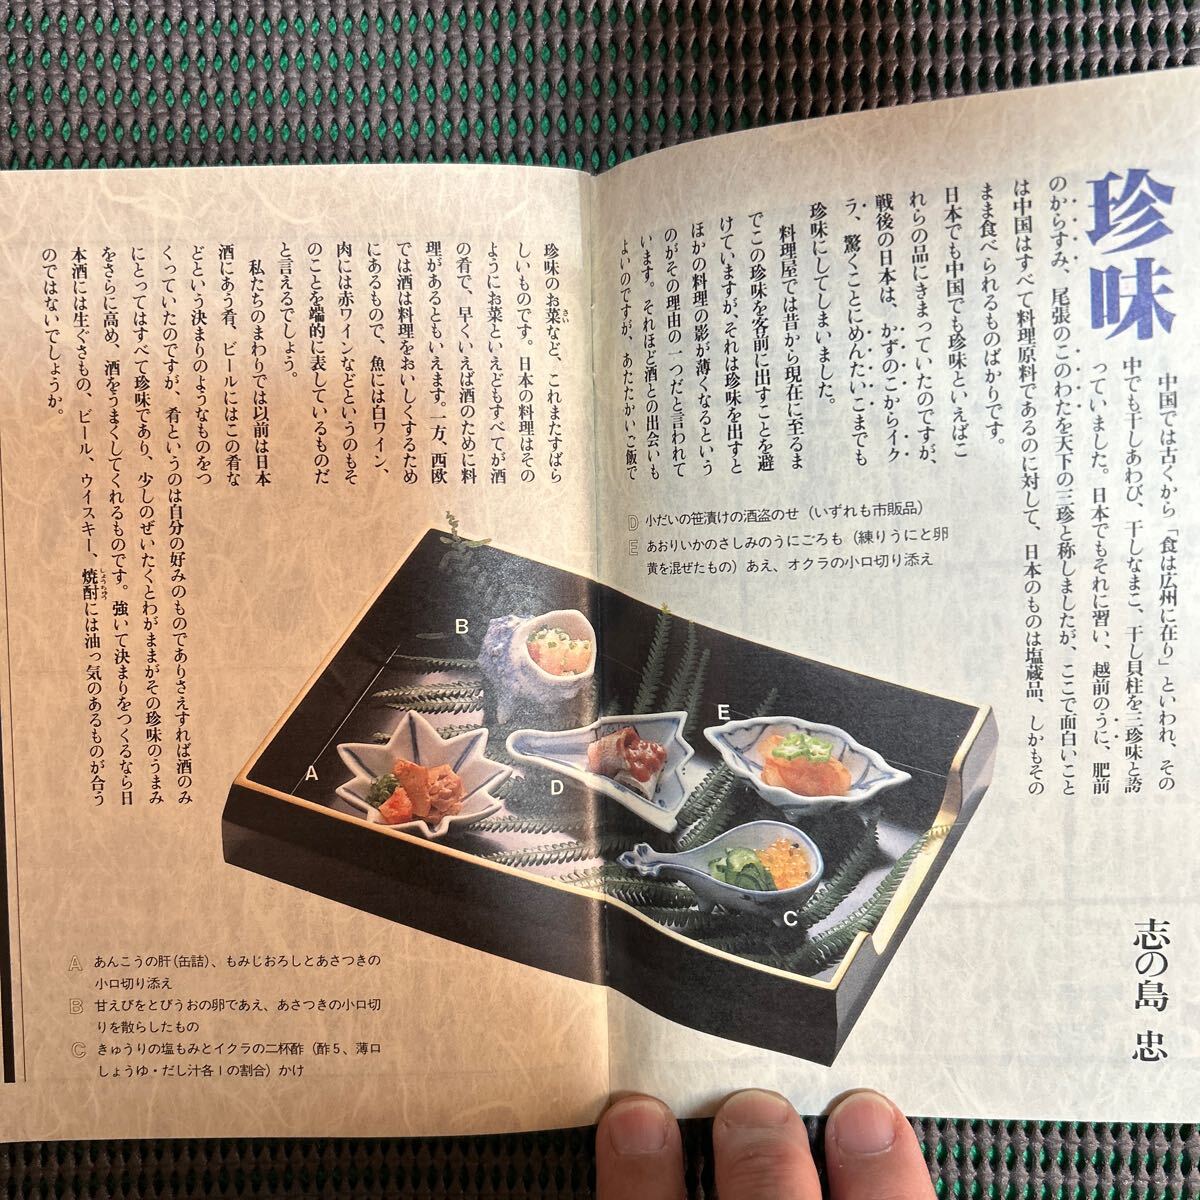 珍味
志の島 忠
中国では古くから「食は広州に在り」といわれ、その
中でも干しあわび、干しなまこ、干し貝柱を三珍味と誇
っていました。日本でもそれに習い、越前のうに、肥前
のからすみ、尾張のこのわたを天下の三珍と称しましたが、ここで面白いこと
は中国はすべて料理原料であるのに対して、日本のものは塩蔵品、しかもその
まま食べられるものばかりです。
日本でも中国でも珍味といえばこ
れらの品にきまっていたのですが、
戦後の日本は、かずのこからイク
ラ、驚くことにめんたいこまでも
珍味にしてしまいました。
料理屋では昔から現在に至るま
でこの珍味を客前に出すことを避
けていますが、それは珍味を出すと
ほかの料理の影が薄くなるという
のがその理由の一つだと言われて
います。それほど酒との出会いも
よいのですが、あたたかいご飯で
D 小だいの笹漬けの酒盗のせ（いずれも市販品）
E あおりいかのさしみのうにごろも（練りうにと卵
黄を混ぜたもの）あえ、オクラの小口切り添え
珍味のお菜など、これまたすばら
さい
しいものです。日本の料理はその
ようにお菜といえどもすべてが酒
の肴で、早くいえば酒のために料
理があるともいえます。一方、西欧
では酒は料理をおいしくするため
にあるもので、魚には白ワイン、
肉には赤ワインなどというのもそ
のことを端的に表しているものだ
と言えるでしょう。
私たちのまわりでは以前は日本
酒にあう肴、ビールにはこの肴な
どという決まりのようなものをつ
くっていたのですが、肴というのは自分の好みのものでありさえすれば酒のみ
にとってはすべて珍味であり、少しのぜいたくとわがままがその珍味のうまみ
をさらに高め、酒をうまくしてくれるものです。強いて決まりをつくるなら日
本酒には生ぐさもの、ビール、ウイスキー、焼酎には油っ気のあるものが合う
しょうちゅう
のではないでしょうか。
B
A
D
E
C
A あんこうの肝（缶詰）、もみじおろしとあさつきの
小口切り添え
B 甘えびをとびうおの卵であえ、あさつきの小口切
りを散らしたもの
C きゅうりの塩もみとイクラの二杯酢（酢5、薄口
しょうゆ・だし汁各1の割合）かけ